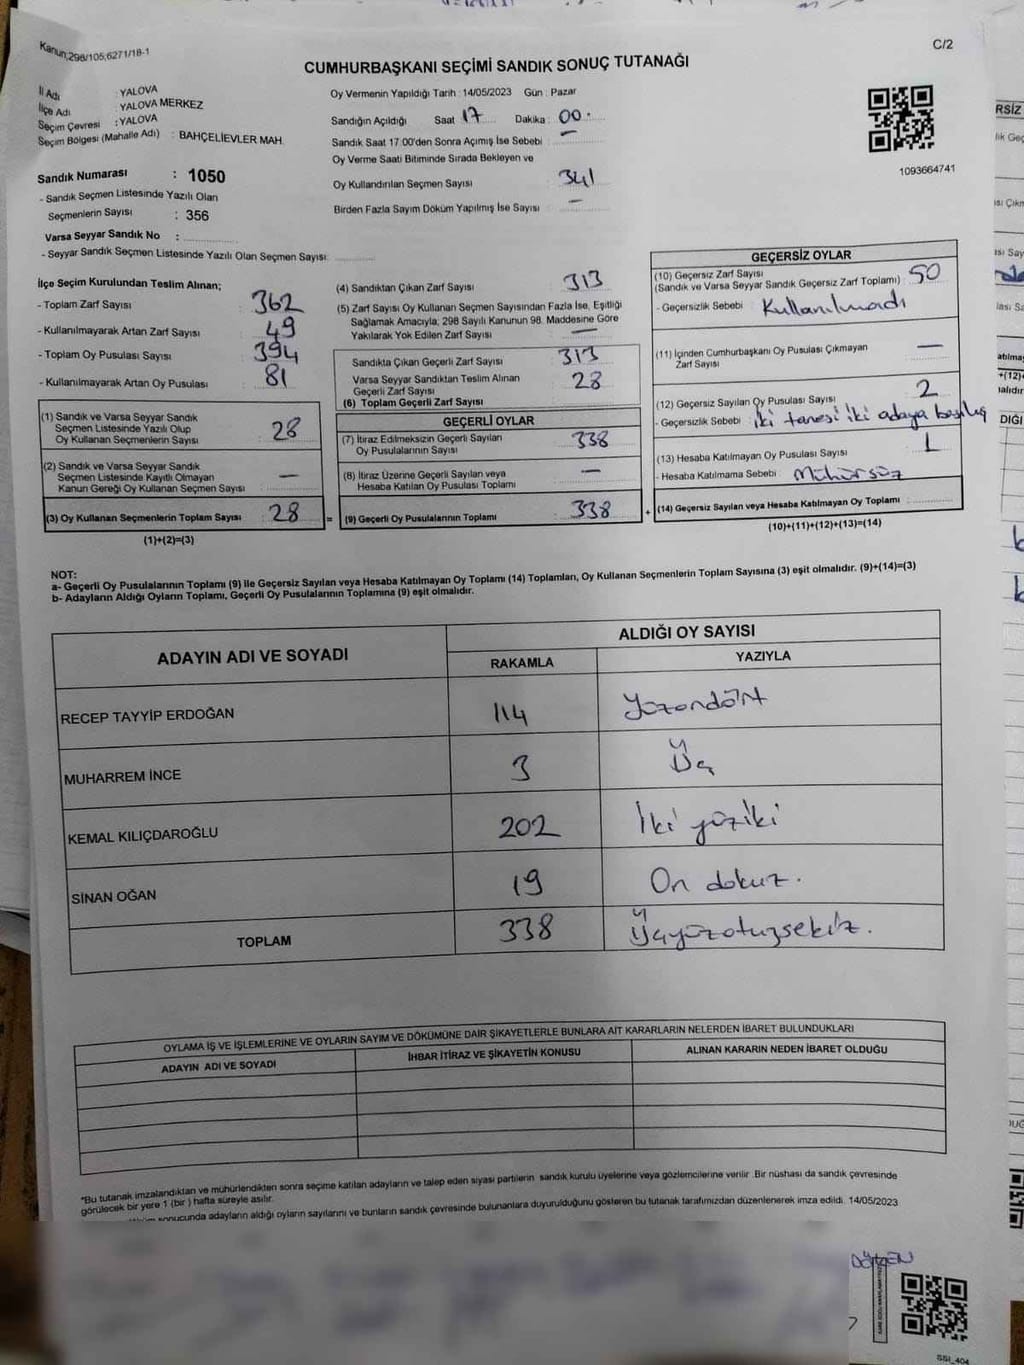 Kanun;298/105;6271/18-1
C/2
CUMHURBAŞKANI SEÇİMİ SANDIK SONUÇ TUTANAĞI
İl Adı : YALOVA
İlçe Adı : YALOVA MERKEZ
Seçim Çevresi : YALOVA
Seçim Bölgesi (Mahalle Adı) : BAHÇELİEVLER MAH.
Oy Vermenin Yapıldığı Tarih : 14/05/2023 Gün : Pazar
Sandığın Açıldığı Saat 17 Dakika : 00.
Sandık Saat 17:00'den Sonra Açımış İse Sebebi : —
Oy Verme Saati Bitiminde Sırada Bekleyen ve
Oy Kullandırılan Seçmen Sayısı 341
Birden Fazla Sayım Döküm Yapılmış İse Sayısı —
1093664741
Sandık Numarası : 1050
- Sandık Seçmen Listesinde Yazılı Olan
Seçmenlerin Sayısı : 356
Varsa Seyyar Sandık No :
- Seyyar Sandık Seçmen Listesinde Yazılı Olan Seçmen Sayısı:
İlçe Seçim Kurulundan Teslim Alınan;
- Toplam Zarf Sayısı 362
- Kullanılmayarak Artan Zarf Sayısı 49
- Toplam Oy Pusulası Sayısı 394
- Kullanılmayarak Artan Oy Pusulası 81
(1) Sandık ve Varsa Seyyar Sandık
Seçmen Listesinde Yazılı Olup
Oy Kullanan Seçmenlerin Sayısı : 28
(2) Sandık ve Varsa Seyyar Sandık
Seçmen Listesinde Kayıtlı Olmayan
Kanun Gereği Oy Kullanan Seçmen Sayısı —
(3) Oy Kullanan Seçmenlerin Toplam Sayısı 28 =
(1)+(2)=(3)
(4) Sandıktan Çıkan Zarf Sayısı 313
(5) Zarf Sayısı Oy Kullanan Seçmen Sayısından Fazla İse, Eşitliği
Sağlamak Amacıyla; 298 Sayılı Kanunun 98. Maddesine Göre
Yakılarak Yok Edilen Zarf Sayısı —
Sandıkta Çıkan Geçerli Zarf Sayısı 313
Varsa Seyyar Sandıktan Teslim Alınan
Geçerli Zarf Sayısı 28
(6) Toplam Geçerli Zarf Sayısı
GEÇERLİ OYLAR
(7) İtiraz Edilmeksizin Geçerli Sayılan
Oy Pusulalarının Sayısı 338
(8) İtiraz Üzerine Geçerli Sayılan veya
Hesaba Katılan Oy Pusulası Toplamı —
(9) Geçerli Oy Pusulalarının Toplamı 338 +
GEÇERSİZ OYLAR
(10) Geçersiz Zarf Sayısı
(Sandık ve Varsa Seyyar Sandık Geçersiz Zarf Toplamı) : 50
- Geçersizlik Sebebi : Kullanılmadı
(11) İçinden Cumhurbaşkanı Oy Pusulası Çıkmayan
Zarf Sayısı —
(12) Geçersiz Sayılan Oy Pusulası Sayısı 2
- Geçersizlik Sebebi : iki tanesi iki adaya basılmış
(13) Hesaba Katılmayan Oy Pusulası Sayısı 1
- Hesaba Katılmama Sebebi : Mühürsüz
(14) Geçersiz Sayılan veya Hesaba Katılmayan Oy Toplamı :
(10)+(11)+(12)+(13)=(14)
NOT:
a- Geçerli Oy Pusulalarının Toplamı (9) ile Geçersiz Sayılan veya Hesaba Katılmayan Oy Toplamı (14) Toplamları, Oy Kullanan Seçmenlerin Toplam Sayısına (3) eşit olmalıdır. (9)+(14)=(3)
b- Adayların Aldığı Oyların Toplamı, Geçerli Oy Pusulalarının Toplamına (9) eşit olmalıdır.
ADAYIN ADI VE SOYADI
ALDIĞI OY SAYISI
RAKAMLA YAZIYLA
RECEP TAYYİP ERDOĞAN 114 Yüzondört
MUHARREM İNCE 3 Üç
KEMAL KILIÇDAROĞLU 202 İki yüziki
SİNAN OĞAN 19 On dokuz.
TOPLAM 338 Üçyüzotuzsekiz.
OYLAMA İŞ VE İŞLEMLERİNE VE OYLARIN SAYIM VE DÖKÜMÜNE DAİR ŞİKAYETLERLE BUNLARA AİT KARARLARIN NELERDEN İBARET BULUNDUKLARI
ADAYIN ADI VE SOYADI İHBAR İTİRAZ VE ŞİKAYETİN KONUSU ALINAN KARARIN NEDEN İBARET OLDUĞU
*Bu tutanak imzalandıktan ve mühürlendikten sonra seçime katılan adayların ve talep eden siyasi partilerin sandık kurulu üyelerine veya gözlemcilerine verilir .Bir nüshası da sandık çevresinde
görülecek bir yere 1 (bir ) hafta süreyle asılır.
sonucunda adayların aldığı oyların sayılarını ve bunların sandık çevresinde bulunanlara duyurulduğunu gösteren bu tutanak tarafımızdan düzenlenerek imza edildi. 14/05/2023
SSI_404